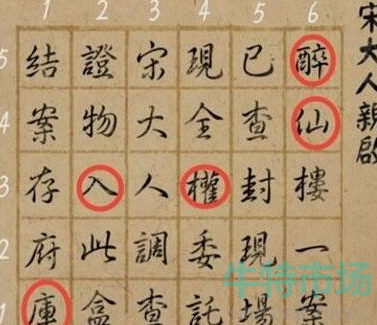 1 2 3 4 5 6
5
4
3
2
1
宋大人親啟
醉仙樓一案
已查封現場
現全權委託
宋大人調查
證物入此盒
結案存府庫
牛特市场